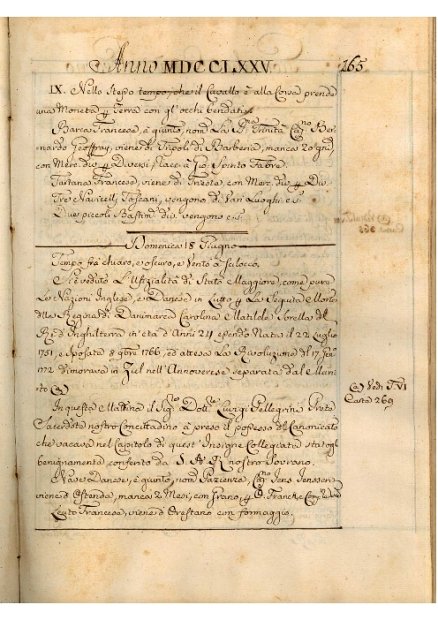 Anno MDCCLXXV.
165
IX. Nello stesso tempo, che il Cavallo è alla Corsa prende
una Moneta p Terra con gl'occhi bendati
Barca Francese, è giunto, nom. La SS. Trinità, Capno Ber-
nardo Geoffray, viene di Tripoli di Barberia, manca 20 gni,
con Merc. div. p Diversi, Racc. a Gio. Spirito Fabre.
Tartana Francese, viene di con Merc. div. p Div.
Tre Navicelli Toscani, vengono di Vari Luoghi e
Due piccoli Bastim. div. vengono
Domenica 18 Giugno
Tempo frà chiaro, e oscuro, e Vento a Scilocco.
Si è veduto L'Ufizialità di Stato Maggiore, come pure
Le Nazioni Inglese, e Danese in Lutto p La Seguita Morte
della Regina di Danimarca Carolina Matilde Sorella del
Re d'Inghilterra in età d'Anni 24 essendo Nata il 22 Luglio
1751, e sposata 8 9bre 1766, ed attesa La Rivoluzione del 17 Gen.
1772 dimorava in Zell nell'Annoverese separata dal Mari-
to (a)
(a) Vedi T. VI
Carta 269
In questa Mattina il Sigre Dotte Luigi Pellegrini Prete
Sacerdote nostro Concittadino à preso il possesso del Canonicato
che vacava nel Capitolo di quest'Insigne Collegiata statogli
benignamente conferito da S. A. R. nostro Sovrano.
Nave Danese, è giunto, nom. Pazienza, Capno Jens Jenssen,
viene d'Ostenda, manca 2 Mesi, con Grano, p Franck, e Comp.
Leuto Francese, viene d'Orestano con formaggio.